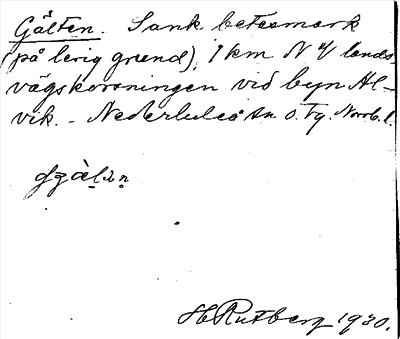 Gälten. Sank betesmark
(på lerig grund), 1 km N ⁠lands-
vägskorsningen vid byn Al-
vik. - Nederluleå sn o. Tg, Norrb. l.
H Rutberg 1930.